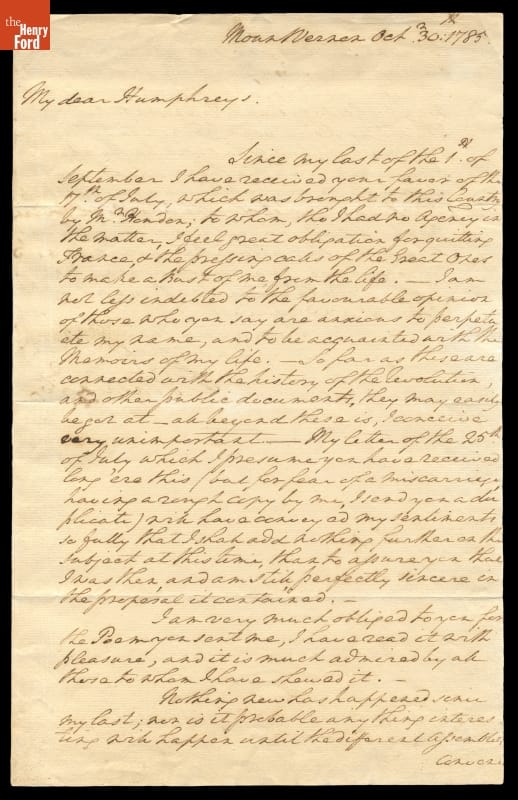 the
Henry
Ford
Mount Vernon Oct. 30th. 1785.
My dear Humphreys.
Since my last of the 1st. of
September I have received your favor of the
17th. of July, which was brought to this Country
by Mr. Houdon; to whom, tho' I had no Agency in
the matter, I feel great obligation for quitting
France, & the pressing calls of the Great Ones
to make a Bust of me from the life. — I am
not less indebted to the favourable opinion
of those who you say are anxious to perpetu
ate my name, and to be acquainted with the
Memoirs of my life. — So far as these are
connected with the history of the revolution,
and other public documents, they may easily
be got at — all beyond these is, I conceive
very unimportant. — My letter of the 25th.
of July which I presume you have received
long 'ere this (but for fear of a miscarriage
having a rough copy by me, I send you a du
plicate) will have conveyed my sentiments
so fully that I shall add nothing further on the
subject at this time, than to assure you that
I was then, and am still perfectly sincere in
the proposal it contained. —
I am very much obliged to you for
the Poem you sent me, I have read it with
pleasure, and it is much admired by all
those to whom I have shewed it. —
Nothing new has happened since
my last; nor is it probable any thing interes
ting will happen until the different Assemblies
convene